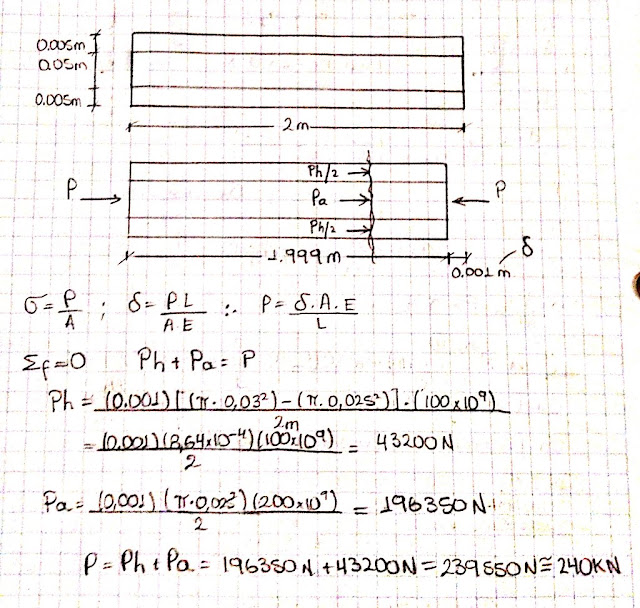 0.005m
0.05m
0.005m
2m
Ph/2
P
Pa
P
Ph/2
1.999m
δ
0.001 m
σ = P/A ; δ = PL/A.E ∴ P = δ.A.E/L
Σf=0 Ph + Pa = P
Ph = (0.001)[(π.0,03²)-(π.0,025²)].(100x10⁹)
2m
= (0.001)(8,64x10⁻⁴)(100x10⁹)/2 = 43200N
Pa = (0,001)(π.0,025²)(200x10⁹)/2 = 196350N
P = Ph + Pa = 196350N + 43200N = 239550N ≅ 240KN